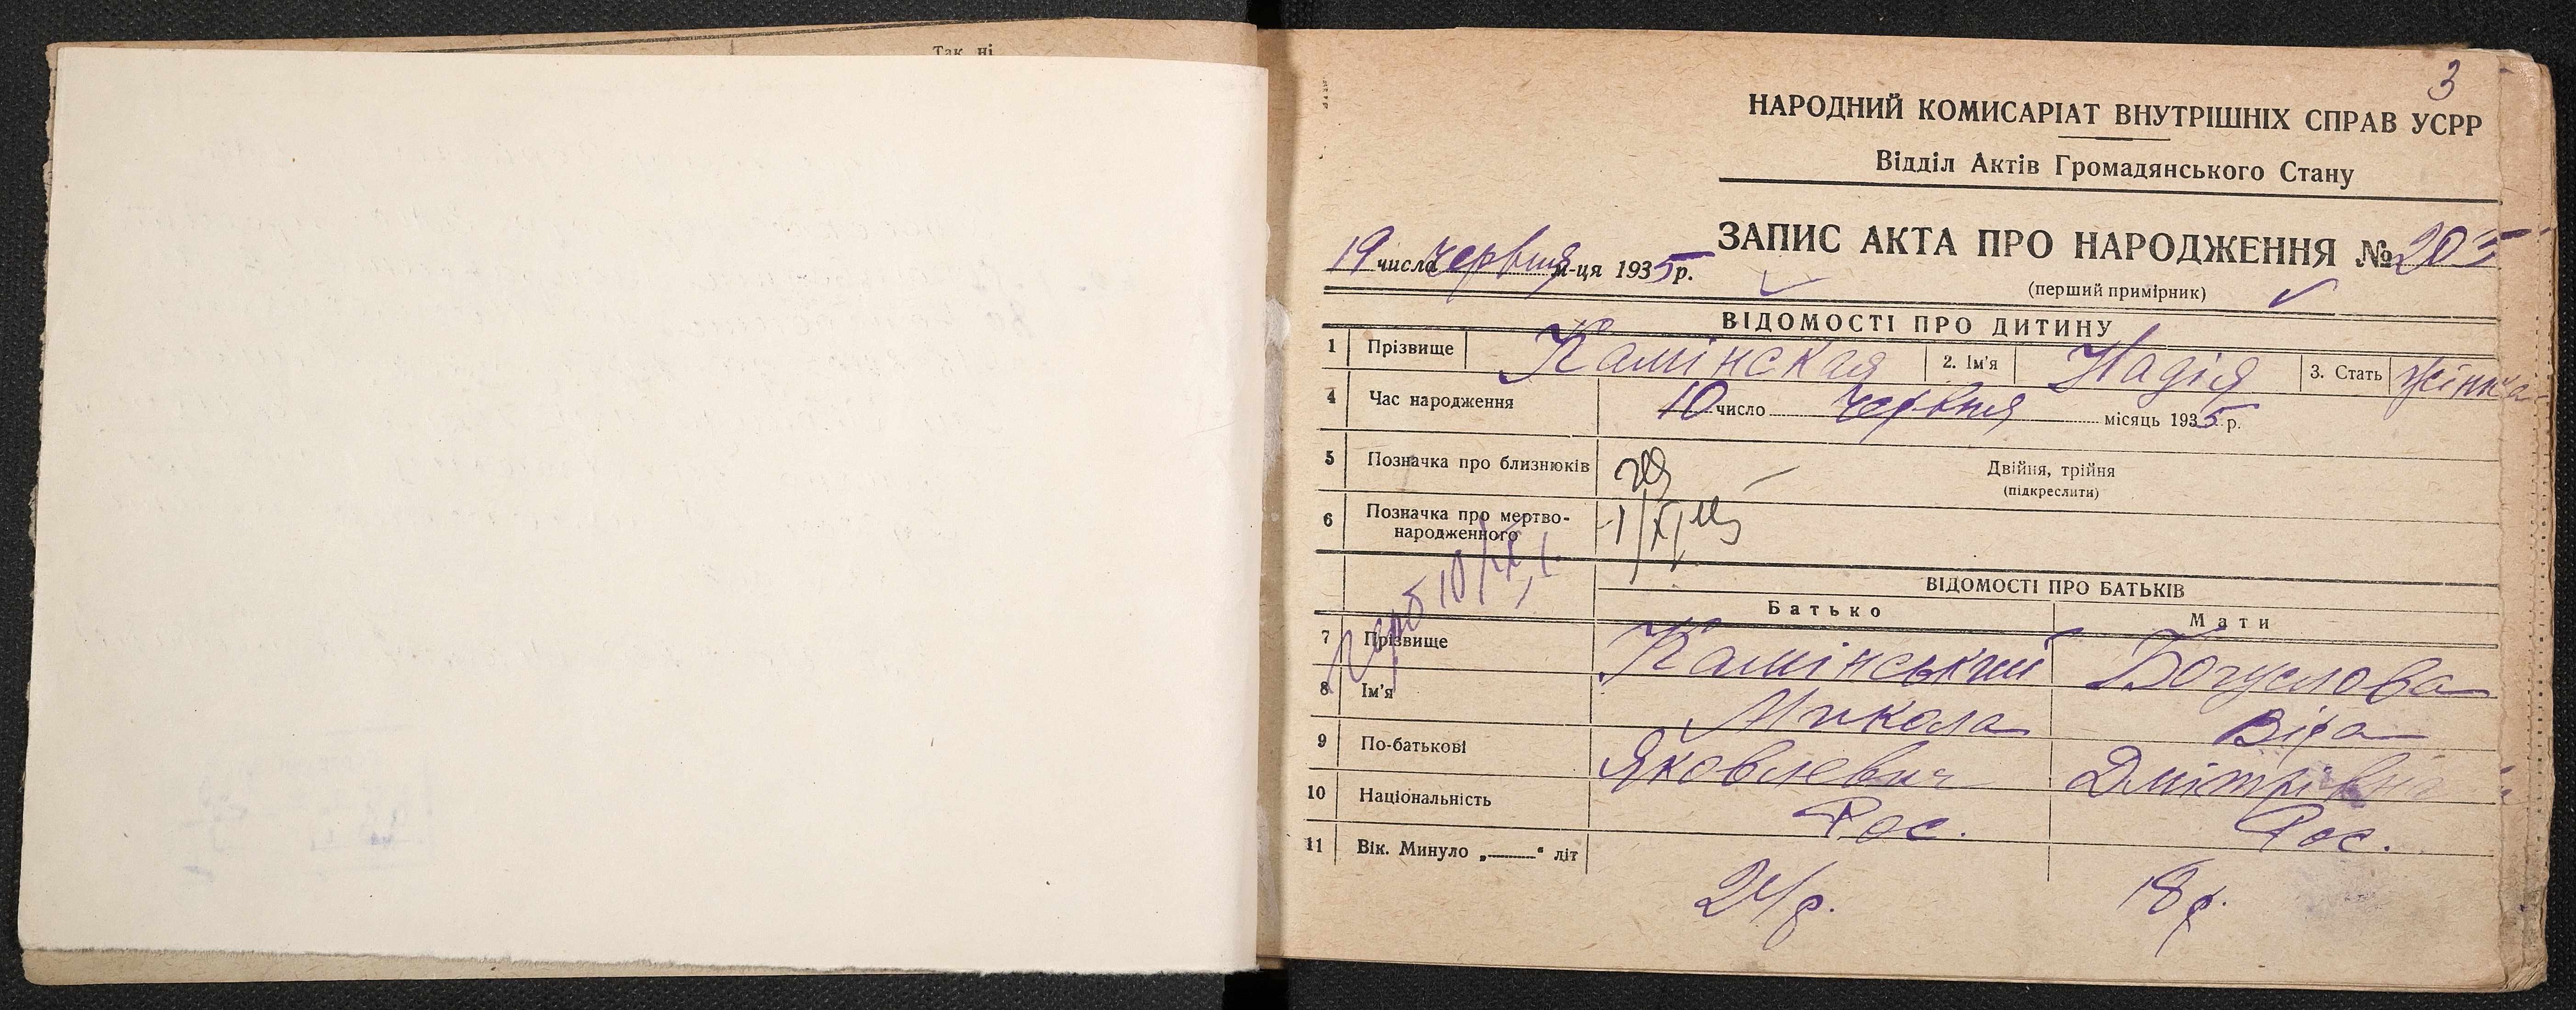 Так ні
3
НАРОДНИЙ КОМИСАРІАТ ВНУТРІШНІХ СПРАВ УСРР
Відділ Актів Громадянського Стану
ЗАПИС АКТА ПРО НАРОДЖЕННЯ № 205
19 числа червня м-ця 1935 р.
(перший примірник)
ВІДОМОСТІ ПРО ДИТИНУ
1 Прізвище Камінская 2. Ім'я Надія 3. Стать жінка
4 Час народження 10 число червня місяць 1935 р.
5 Позначка про близнюків Двійня, трійня
(підкреслити)
6 Позначка про мертво-
народженного
ВІДОМОСТІ ПРО БАТЬКІВ
Батько Мати
7 Прізвище Камінський Богуслова
8 Ім'я Микола Віра
9 По-батькові Яковлевич Дмітрівна
10 Національність Рос. Рос.
11 Вік. Минуло „——" літ 24 р. 18 р.